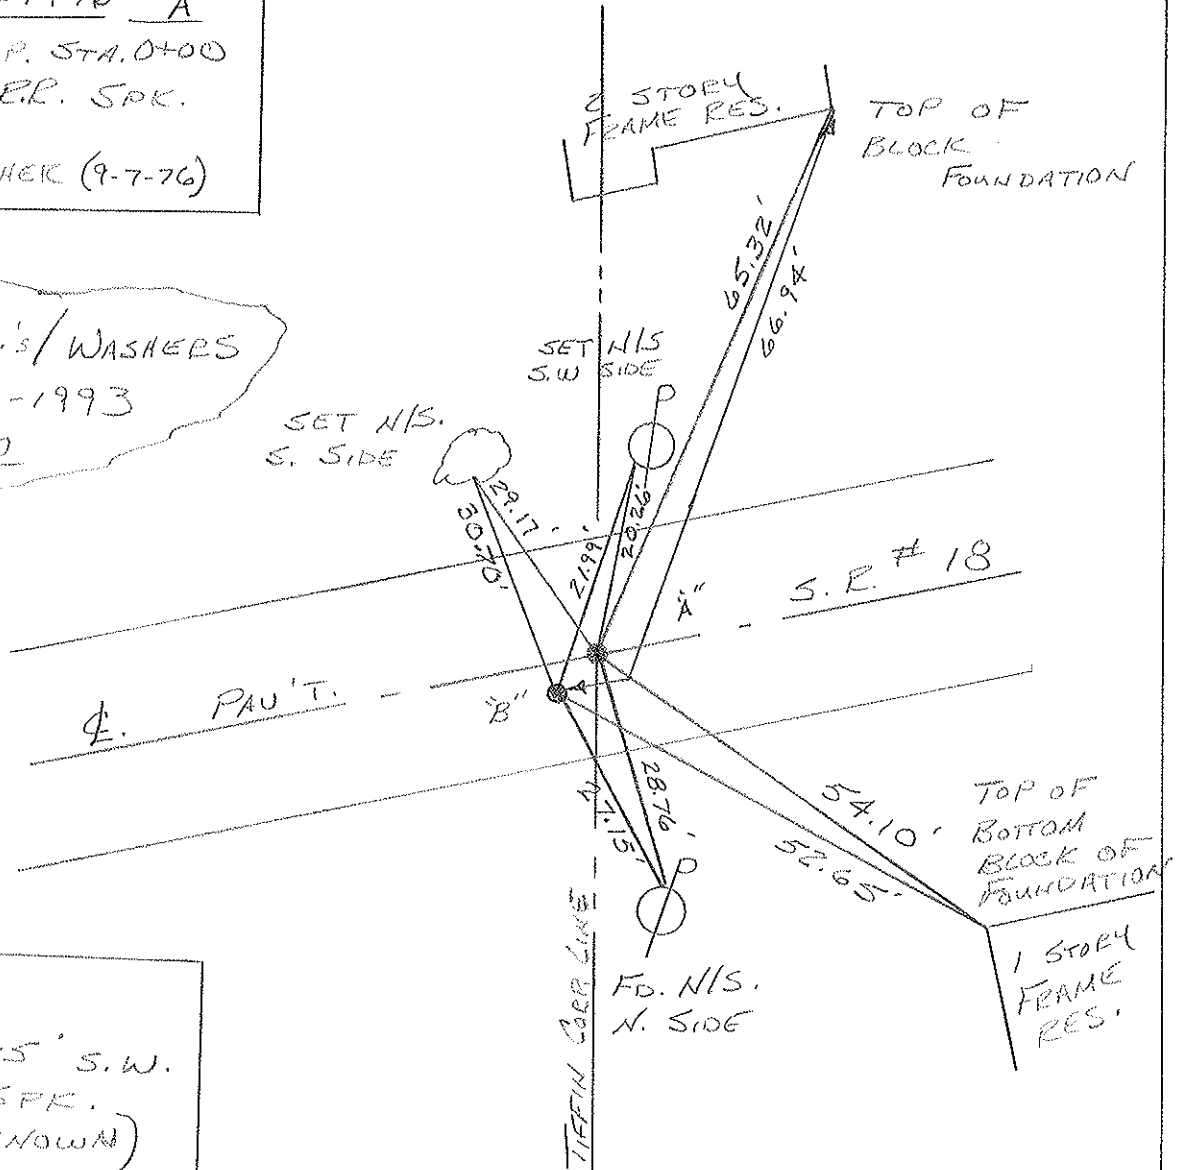 A
P. STA. 0+00
R.R. SPK.
(9-7-76)
2 STORY
FRAME RES.
TOP OF
BLOCK
FOUNDATION
65.32'
66.94'
.'s/ WASHERS
-1993
SET N/S
S.W SIDE
SET N/S.
S. SIDE
P
29.17'
30.70'
21.99'
20.26'
"A"
S.R. # 18
"B"
℄. PAV'T.
28.76'
54.10'
52.65'
TOP OF
BOTTOM
BLOCK OF
FOUNDATION
P
1 STORY
FRAME
RES.
FD. N/S.
N. SIDE
TIFFIN CORP. LINE
5' S.W.
SPK.
NOWN)